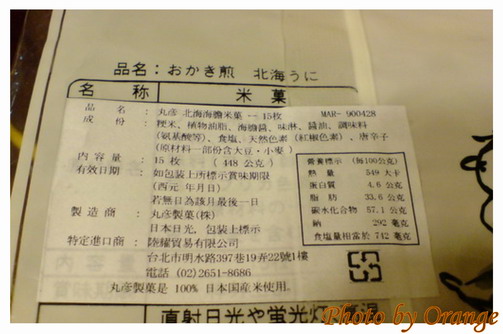 品名：おかき煎　北海うに
名　称　米　菓
品　名　：　丸彦 北海海膽米菓 -- 15枚　MAR- 900428
成　份　：　粳米、植物油脂、海膽醬、味淋、醬油、調味料
(氨基酸等)、食塩、天然色素（紅椒色素）、唐辛子
(原材料一部份含大豆・小麥 )
內 容 量　：　15 枚　( 448 公克 )
有效日期　：　如包裝上所標示賞味期限
(西元 年月日)
若無日為該月最後一日
製 造 商　：　丸彦製菓(株)
日本日光，包裝上標示
特定進口商　：　陸耀貿易有限公司
台北市明水路397巷19弄22號
電話 (02)2651-8686
丸彦製菓是 100% 日本国産米使用.
營養標示 (每100公克)
熱　量　549 大卡
蛋白質　4.6 公克
脂　肪　33.6 公克
碳水化合物　57.1 公克
納　292 毫克
食塩量相當於 742 毫克
直射日光や蛍光灯
Photo by Orange